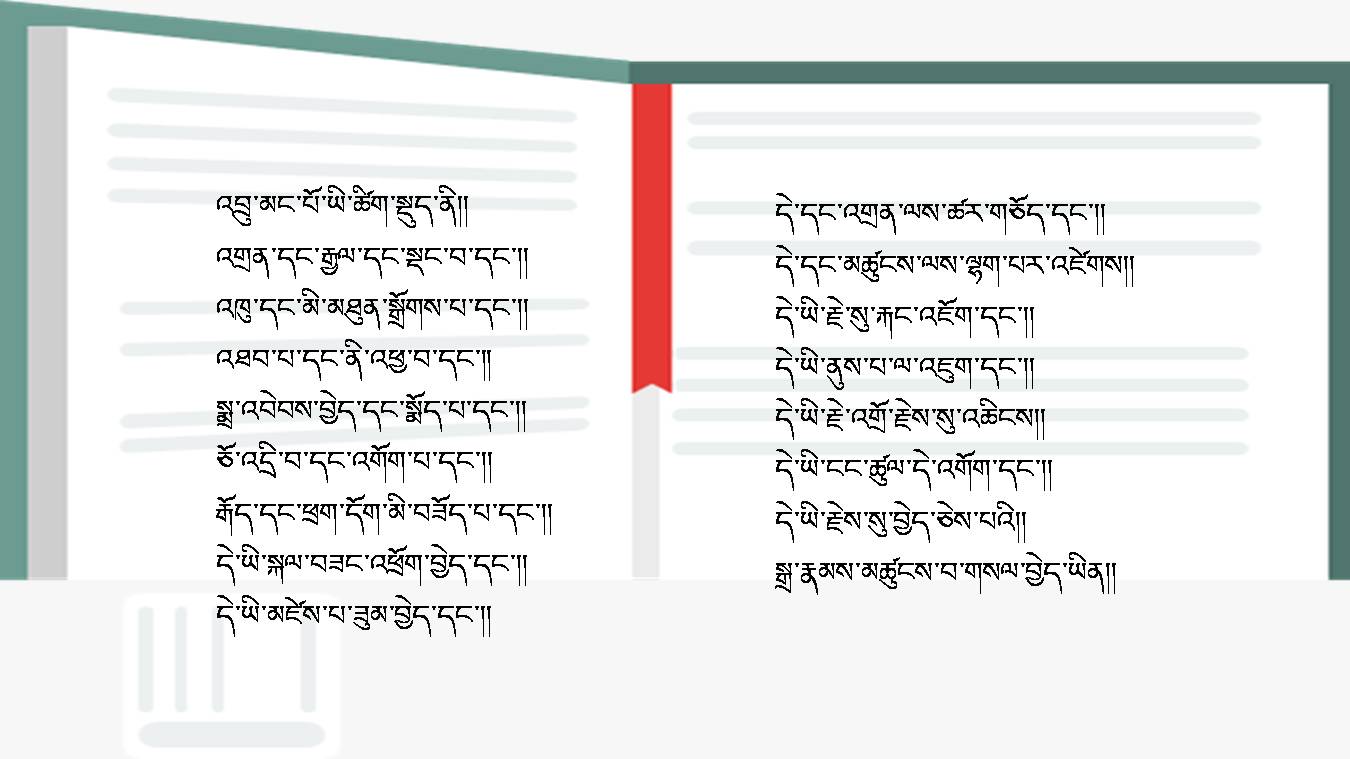 འབྲུ་མང་པོ་ཡི་ཚིག་སྡུད་ནི།།
འགྲན་དང་རྒྱལ་དང་སྡང་བ་དང་།།
འཁུ་དང་མི་མཐུན་སྒྲོགས་པ་དང་།།
འཐབ་པ་དང་ནི་འཕྱ་བ་དང་།།
སྨྲ་འབེབས་བྱེད་དང་སྨོད་པ་དང་།།
ཅོ་འདྲི་བ་དང་འགོག་པ་དང་།།
རྒོད་དང་ཕྲག་དོག་མི་བཟོད་པ་དང་།།
དེ་ཡི་སྐལ་བཟང་འཕྲོག་བྱེད་དང་།།
དེ་ཡི་མཛེས་པ་ཟུམ་བྱེད་དང་།།
དེ་དང་འགྲན་ལས་ཚར་གཅོད་དང་།།
དེ་དང་མཚུངས་ལས་ལྷག་པར་འཛེགས།།
དེ་ཡི་རྗེ་སུ་རྐང་འཇོག་དང་།།
དེ་ཡི་ནུས་པ་ལ་འཇུག་དང་།།
དེ་ཡི་རྗེ་འགྲོ་རྗེས་སུ་འཆིངས།།
དེ་ཡི་ངང་ཚུལ་དེ་འགོག་དང་།།
དེ་ཡི་རྗེས་སུ་བྱེད་ཅེས་པའི།།
སྒྲ་རྣམས་མཚུངས་བ་གསལ་བྱེད་ཡིན།།